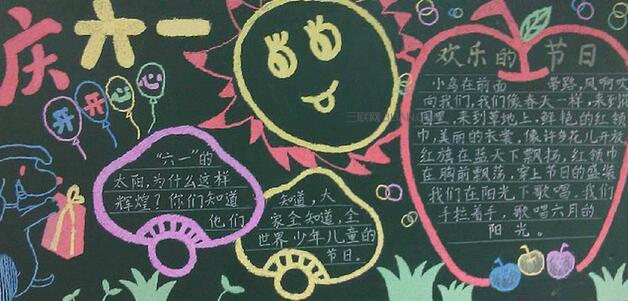 庆六一
开开心心
"六一"的
太阳,为什么这样
辉煌?你们知道
他们
知道,大
家全知道,全
世界少年儿童的
节日。
欢乐的节日
小鸟在前面 带路,风啊吹
向我们,我们像春天一样,来到花
园里,来到草地上,鲜艳的红领
巾,美丽的衣裳,像许多花儿开放
红旗在蓝天下飘扬,红领巾
在胸前飘荡,穿上节日的盛装
我们在阳光下歌唱。我们
手拦着手,歌唱六月的
阳光。
三联网 3LIAN.COM